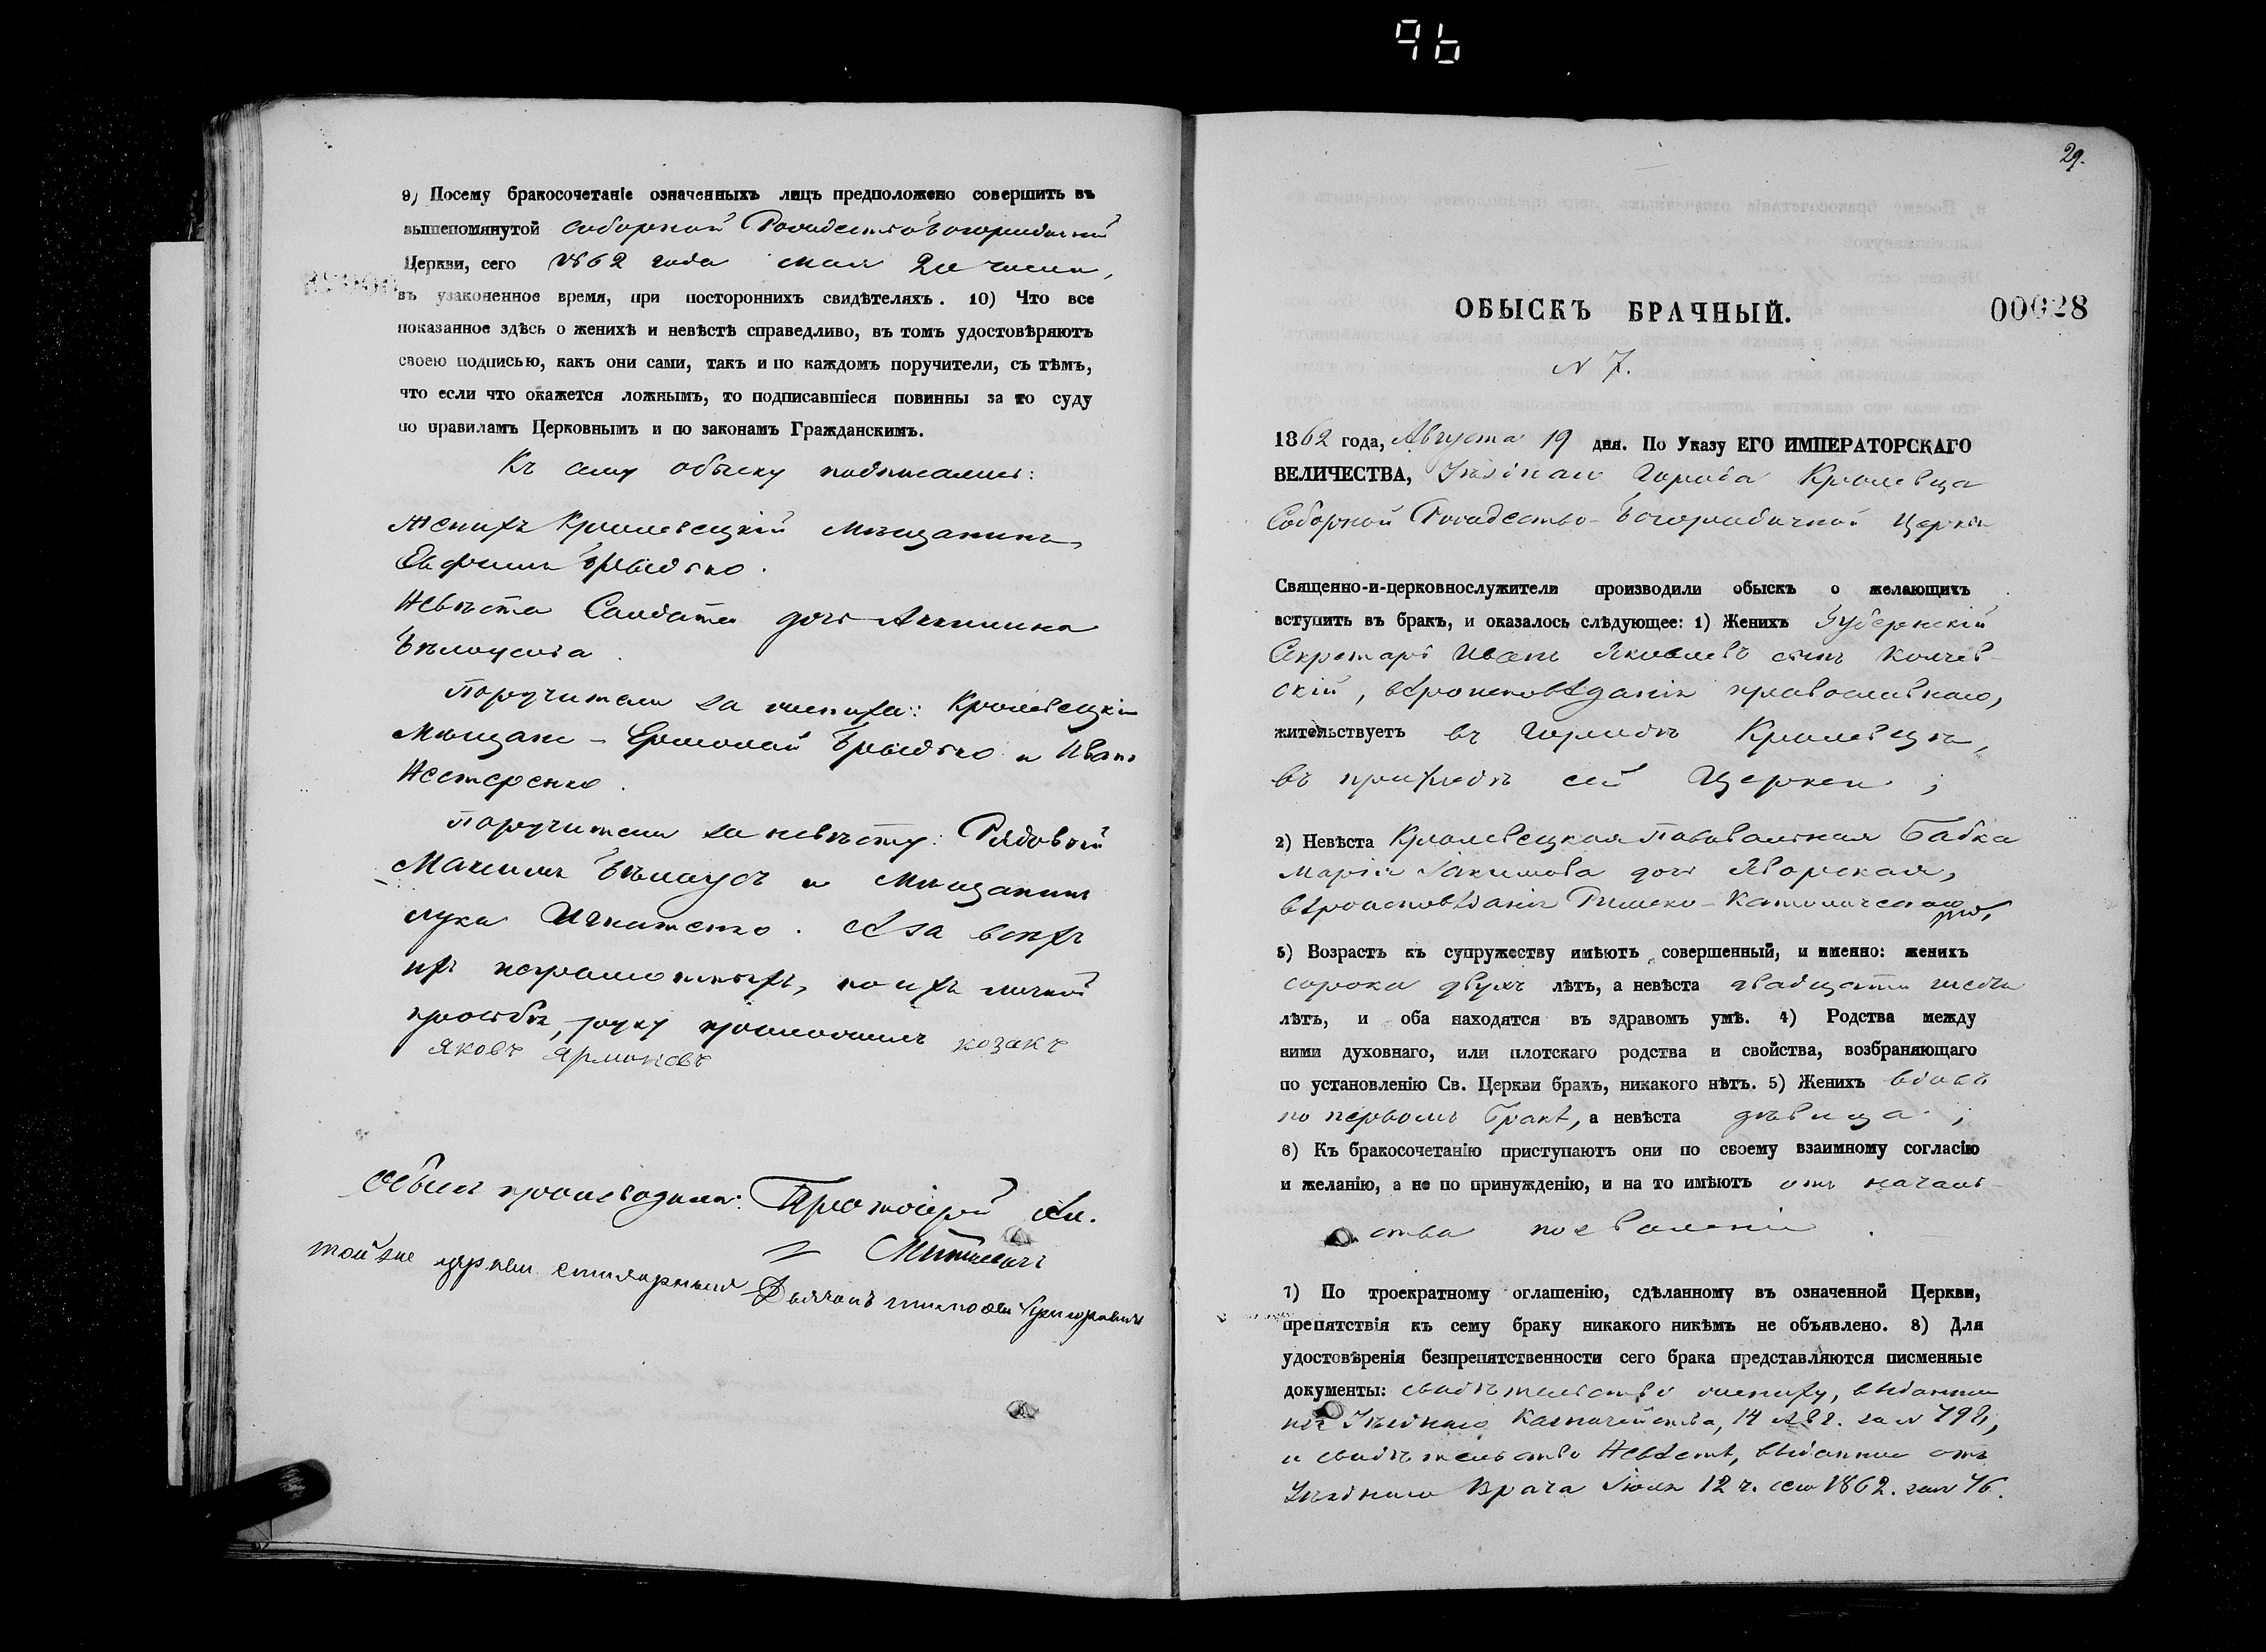 9) Посему бракосочетаніе означенныхъ лицъ предположено совершить въ
вышепомянутой соборной Рождество Богородичной
Церкви, сего 1862 года мая 20 числа,
въ узаконенное время, при постороннихъ свидѣтеляхъ. 10) Что все
показанное здѣсь о женихѣ и невѣстѣ справедливо, въ томъ удостовѣряютъ
своею подписью, какъ они сами, такъ и по каждомъ поручители, съ тѣмъ,
что если что окажется ложнымъ, то подписавшіеся повинны за то суду
по правиламъ Церковнымъ и по законамъ Гражданскимъ.
Къ сему обыску подписались:
Женихъ Кролевецкій Мѣщанинъ
Евфимъ
Невѣста Солдатская дочь Акилина
Бѣлоусова.
Поручители за жениха: Кролевецкіе
Мѣщане - Ермолай и Иванъ
Нестеренко.
Поручители за невѣсту: Рядовой
Максимъ Бѣлоусъ и Мѣщанинъ
Лука Игнатенко. А за всѣхъ
ихъ неграмотныхъ, по ихъ личной
просьбѣ, руку приложилъ козакъ
Яковъ
Обыскъ производили: Протоіерей
той же церкви Дьяконъ
96
29.
00028
ОБЫСКЪ БРАЧНЫЙ.
N 7.
1862 года, Августа 19 дня. По Указу ЕГО ИМПЕРАТОРСКАГО
ВЕЛИЧЕСТВА, Уѣзднаго Города Кролевца
Соборной Рождество-Богородичной Церкви
Священно-и-церковнослужители производили обыскъ о желающихъ
вступить въ бракъ, и оказалось слѣдующее: 1) Женихъ Губернскій
Секретарь Иванъ Яковлевъ сынъ Колчев-
скій, вѣроисповѣданія православнаго,
жительствуетъ въ Городѣ Кролевцѣ,
въ приходѣ сей Церкви;
2) Невѣста Кролевецкая Повивальная Бабка
Марія Іакимова дочь Яворская,
вѣроисповѣданія Римско-Католическаго
5) Возрастъ къ супружеству имѣютъ совершенный, и именно: женихъ
сорока двухъ лѣтъ, а невѣста двадцати шести
лѣтъ, и оба находятся въ здравомъ умѣ. 4) Родства между
ними духовнаго, или плотскаго родства и свойства, возбраняющаго
по установленію Св. Церкви бракъ, никакого нѣтъ. 5) Женихъ вдовъ
по первомъ бракѣ, а невѣста дѣвица;
6) Къ бракосочетанію приступаютъ они по своему взаимному согласію
и желанію, а не по принужденію, и на то имѣютъ отъ началь-
ства позволеніе.
7) По троекратному оглашенію, сдѣланному въ означенной Церкви,
препятствія къ сему браку никакого никѣмъ не объявлено. 8) Для
удостовѣренія безпрепятственности сего брака представляются писменные
документы: свидѣтельство жениху, выданное
изъ Уѣзднаго Казначейства, 14
и свидѣтельство Невѣстѣ, выданное отъ
Уѣзднаго Врача Іюля 12 ч. сего 1862. за № 76.